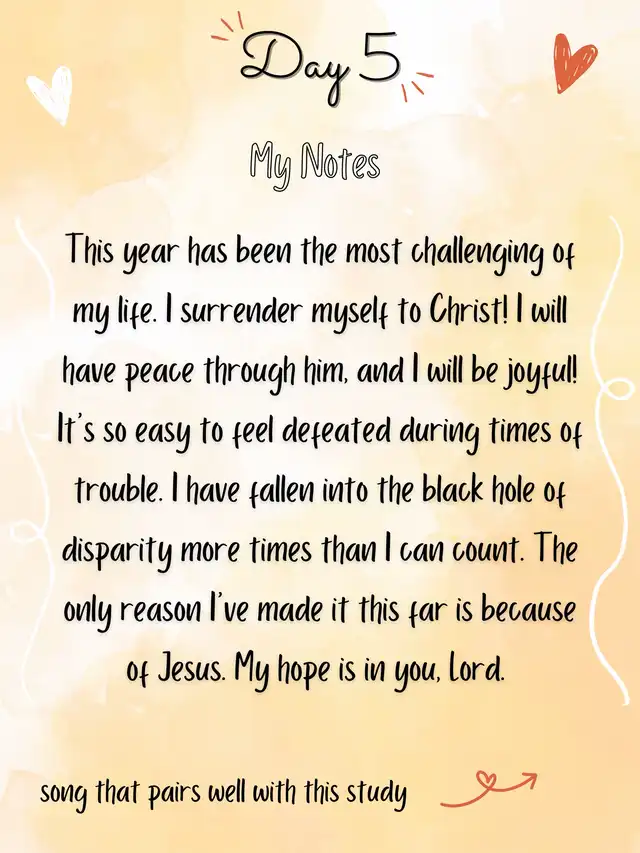 Day 5
My Notes
This year has been the most challenging of
my life. I surrender myself to Christ! I will
have peace through him, and I will be joyful!
It's so easy to feel defeated during times of
trouble. I have fallen into the black hole of
disparity more times than I can count. The
only reason I've made it this far is because
of Jesus. My hope is in you, Lord.
song that pairs well with this study